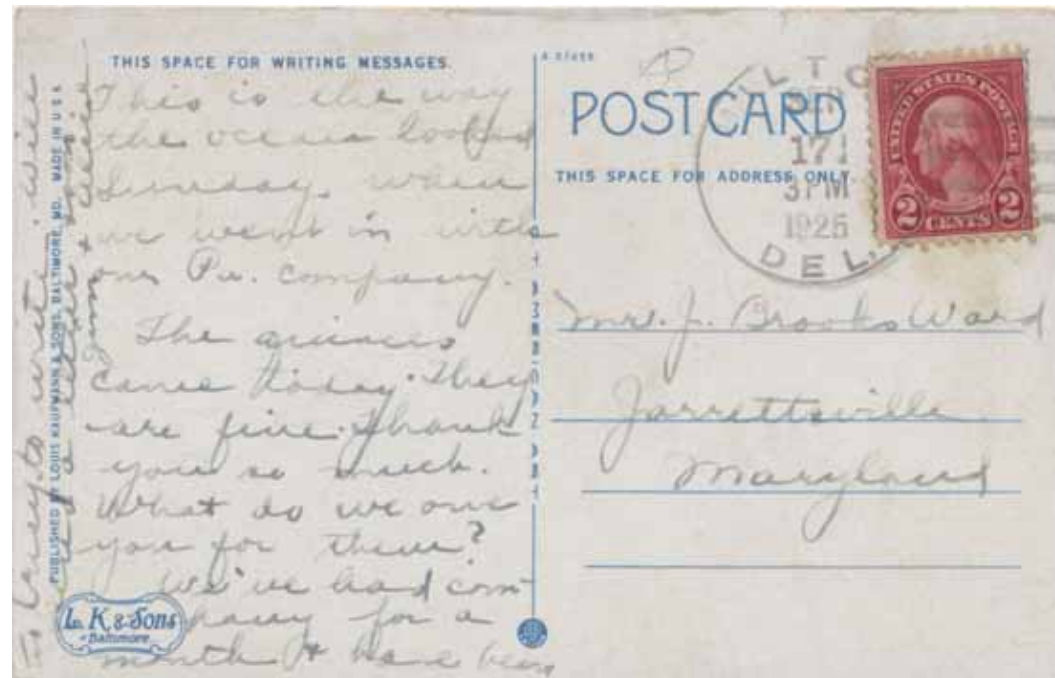 THIS SPACE FOR WRITING MESSAGES.
This is the way
the ocean looked
Sunday, when
we went in with
our Pa. company.
The quinces
came today. They
are fine. Thank
you so much.
What do we owe
you for them?
We've had com-
pany for a
month & have been
to busy to write. Will
send a letter &
PUBLISHED BY LOUIS KAUFMANN & SONS, BALTIMORE, MD. MADE IN U S A
L. K. & Sons
Baltimore
POST CARD
THIS SPACE FOR ADDRESS ONLY.
17
3 PM
1925
DEL.
UNITED STATES POSTAGE
2 CENTS 2
Mr. J. Brooks Ward
Jarrettsville
Maryland